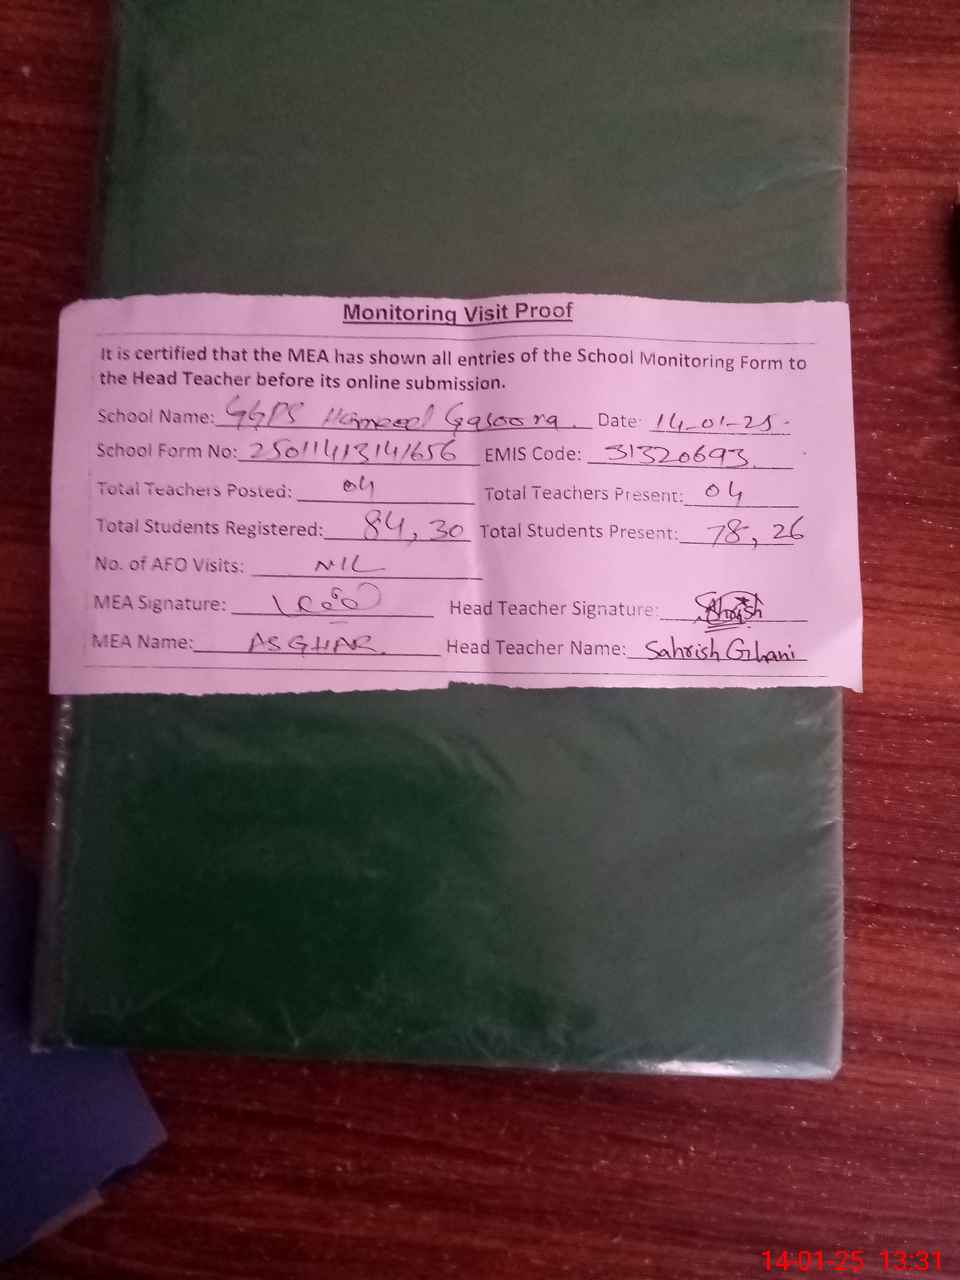 Monitoring Visit Proof
It is certified that the MEA has shown all entries of the School Monitoring Form to
the Head Teacher before its online submission.
School Name: GGPS Hameed Gasoora Date: 14-01-25
School Form No: 25011413141656 EMIS Code: 31320693
Total Teachers Posted: 04 Total Teachers Present: 04
Total Students Registered: 84, 30 Total Students Present: 78, 26
No. of AFO Visits: NIL
MEA Signature: Head Teacher Signature: Sahrish
MEA Name: ASGHAR Head Teacher Name: Sahrish Ghani
14-01-25 13:31